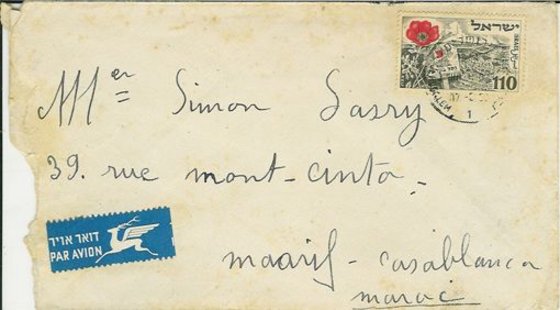 ישראל
ISRAEL
110
1
Mer Simon Sasry
39. rue mont-cinto
דואר אויר
PAR AVION
maarif - casablanca
maroc